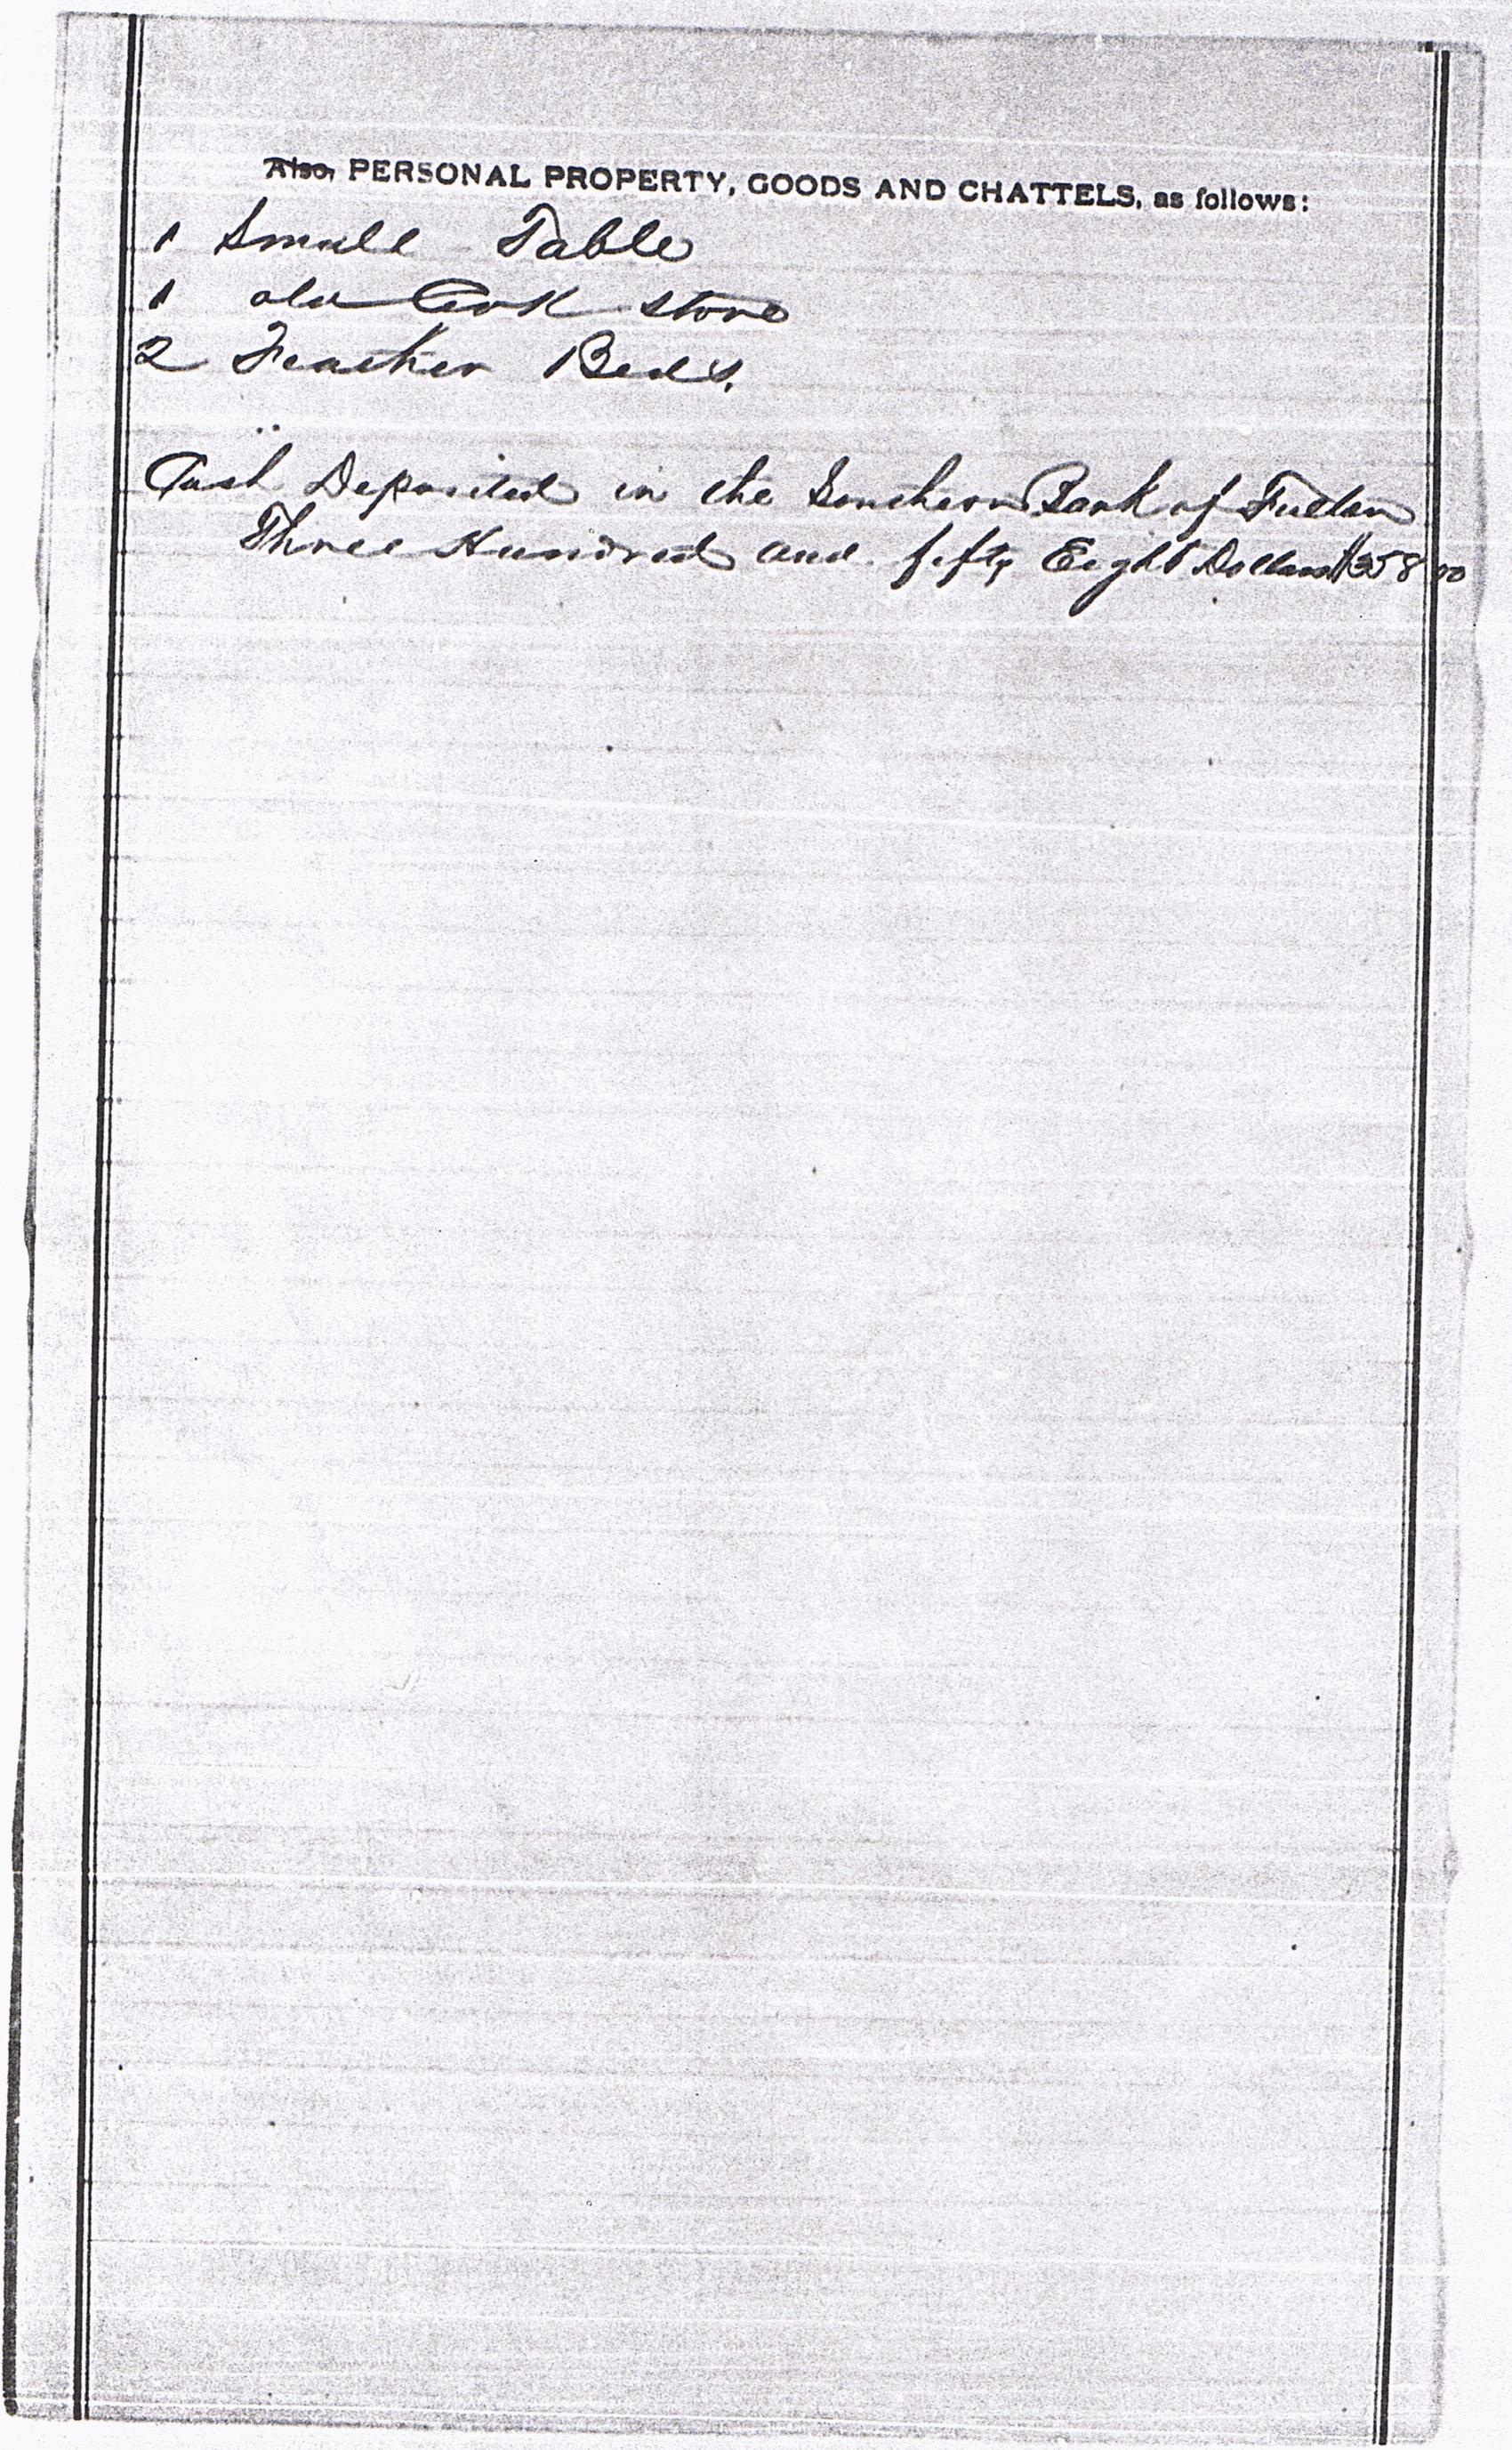 Also, PERSONAL PROPERTY, GOODS AND CHATTELS, as follows:
1 Small Table
1 old Cook stove
2 Feather Beds.
Cash Deposited in the Southern Bank of Fulton
Three Hundred and fifty Eight Dollars $358 00